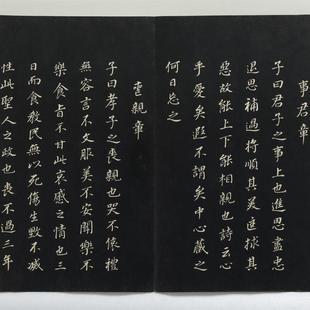 事君章
子曰君子之事上也進思盡忠
退思補過將順其美匡捄其
惡故能上下能相親也詩云心
乎愛矣遐不謂矣中心藏之
何日忘之
喪親章
子曰孝子之喪親也哭不依禮
無容言不文服美不安聞樂不
樂食旨不甘此哀慼之情也三
日而食教民無以死傷生毀不滅
性此聖人之政也喪不過三年